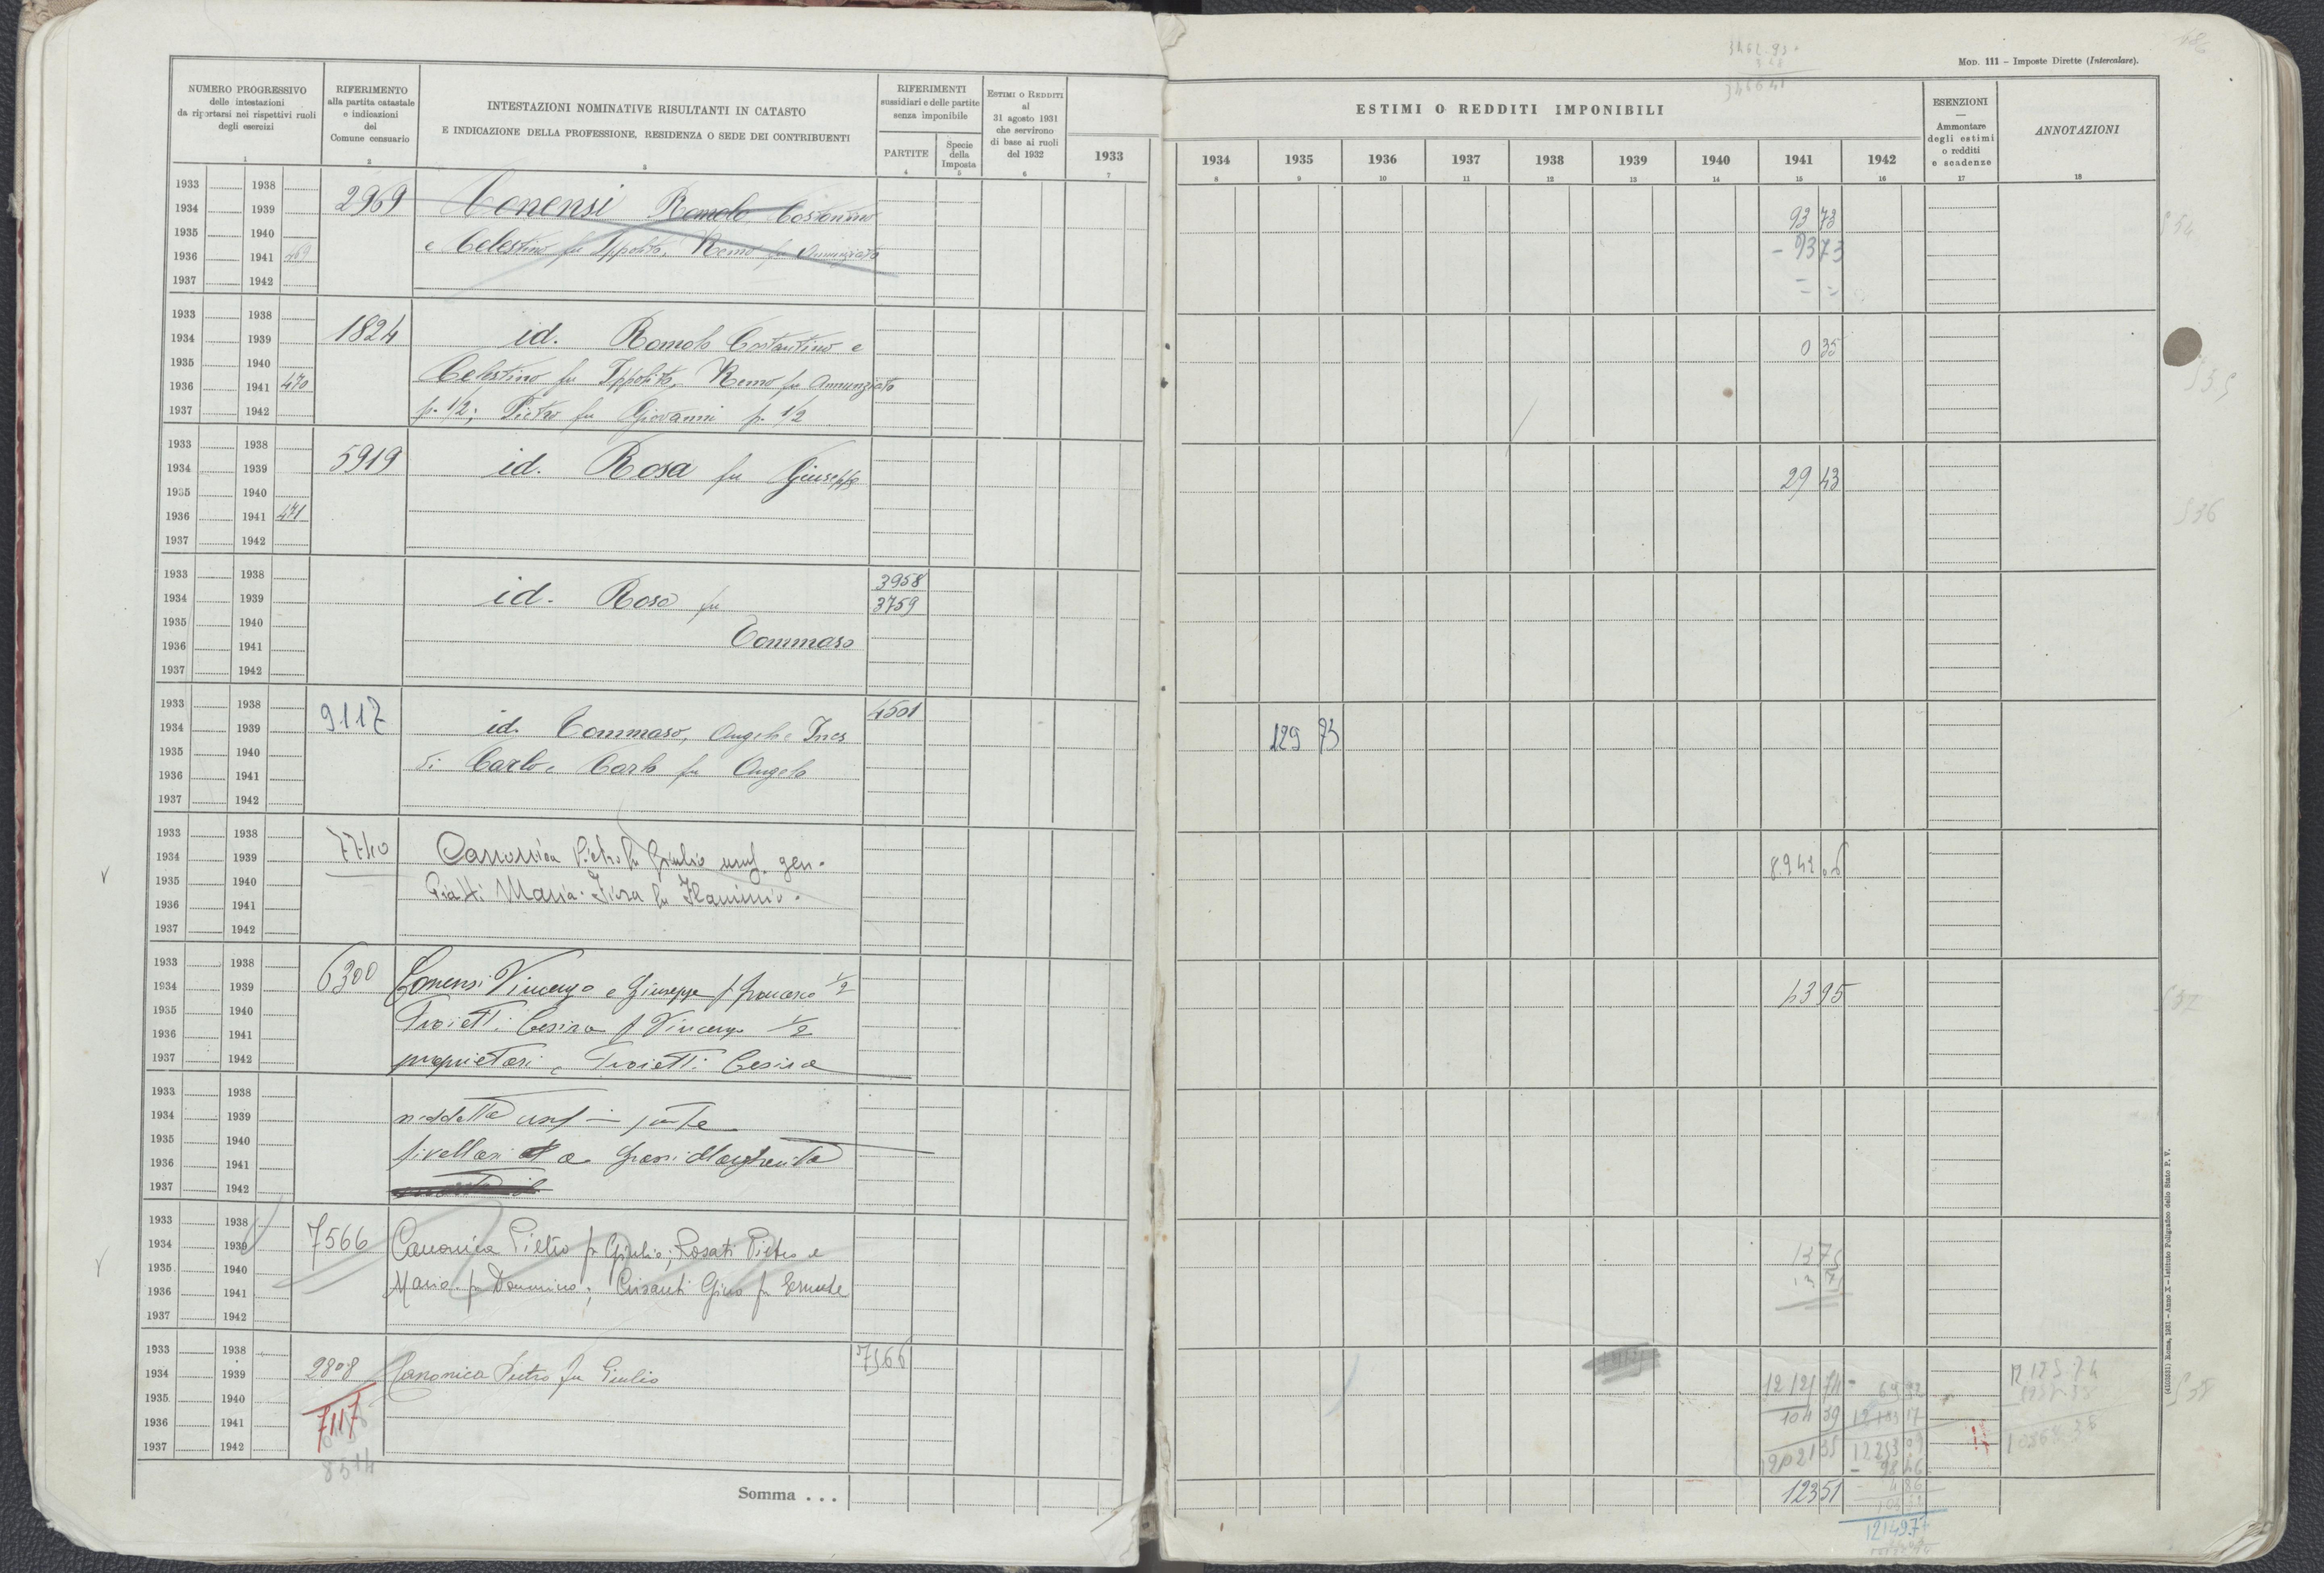 3462.93
Mod. 111 – Imposte Dirette (Intercalare).
NUMERO PROGRESSIVO
delle intestazioni
da riportarsi nei rispettivi ruoli
degli esercizi
1
RIFERIMENTO
alla partita catastale
e indicazioni
del
Comune censuario
2
INTESTAZIONI NOMINATIVE RISULTANTI IN CATASTO
E INDICAZIONE DELLA PROFESSIONE, RESIDENZA O SEDE DEI CONTRIBUENTI
3
RIFERIMENTI
sussidiari e delle partite
senza imponibile
PARTITE
4
Specie
della
Imposta
5
Estimi o Redditi
al
31 agosto 1931
che servirono
di base ai ruoli
del 1932
6
1933
7
ESTIMI O REDDITI IMPONIBILI
1934 1935 1936 1937 1938 1939 1940 1941 1942
8 9 10 11 12 13 14 15 16
ESENZIONI
—
Ammontare
degli estimi
o redditi
e scadenze
17
ANNOTAZIONI
18
1933 1938
1934 1939 2969 Conensi Romolo, Costantino 93 73
1935 1940 e Celestino fu Ippolito, Remo fu Annunziata - 93 73
1936 1941 469
1937 1942
1933 1938
1934 1939 1824 id. Romolo Costantino e 0 35
1935 1940
1936 1941 470 Celestino fu Ippolito, Remo fu Annunziata
1937 1942 p. 1/2; Pietro fu Giovanni p. 1/2
1933 1938
1934 1939 5919 id. Rosa fu Giuseppe 29 43
1935 1940
1936 1941 471
1937 1942
536
1933 1938 3958
1934 1939 id. Rosa fu 3759
1935 1940
1936 1941 Tommaso
1937 1942
1933 1938 4501
1934 1939 9117 id. Tommaso, Angelo e Ines 129 73
1935 1940
1936 1941 di Carlo e Carlo fu Angelo
1937 1942
1933 1938
1934 1939 7740 Canonica Pietro fu Giulio usuf. gen. 8.942 06
1935 1940
1936 1941 Piatti Maria-Fiora fu Flaminio.
1937 1942
1933 1938
1934 1939 6300 Conensi Vincenzo e Giuseppe f Francesco 1/2 43 95
1935 1940
1936 1941 Troietti Cesira f Vincenzo 1/2
1937 1942 proprietari e Troietti Cesira
537
1933 1938
1934 1939 suddetta usuf in parte
1935 1940
1936 1941 livellari a Grassi Margherita
1937 1942
1933 1938
1934 1939 7566 Canonica Pietro fu Giulio; Rosati Pietro e 13 75
1935 1940
1936 1941 Maria fu Domenico; Crisanti Gino fu Ernesto
1937 1942
1933 1938 7566
1934 1939 2808 Canonica Pietro fu Giulio 12 121 74
1935 1940 104 39
1936 1941 7117 12021 35 12253 09
1937 1942
8514
538
Somma . . . 12351
12149.77
(4103531) Roma, 1931 – Anno X – Istituto Poligrafico dello Stato P. V.